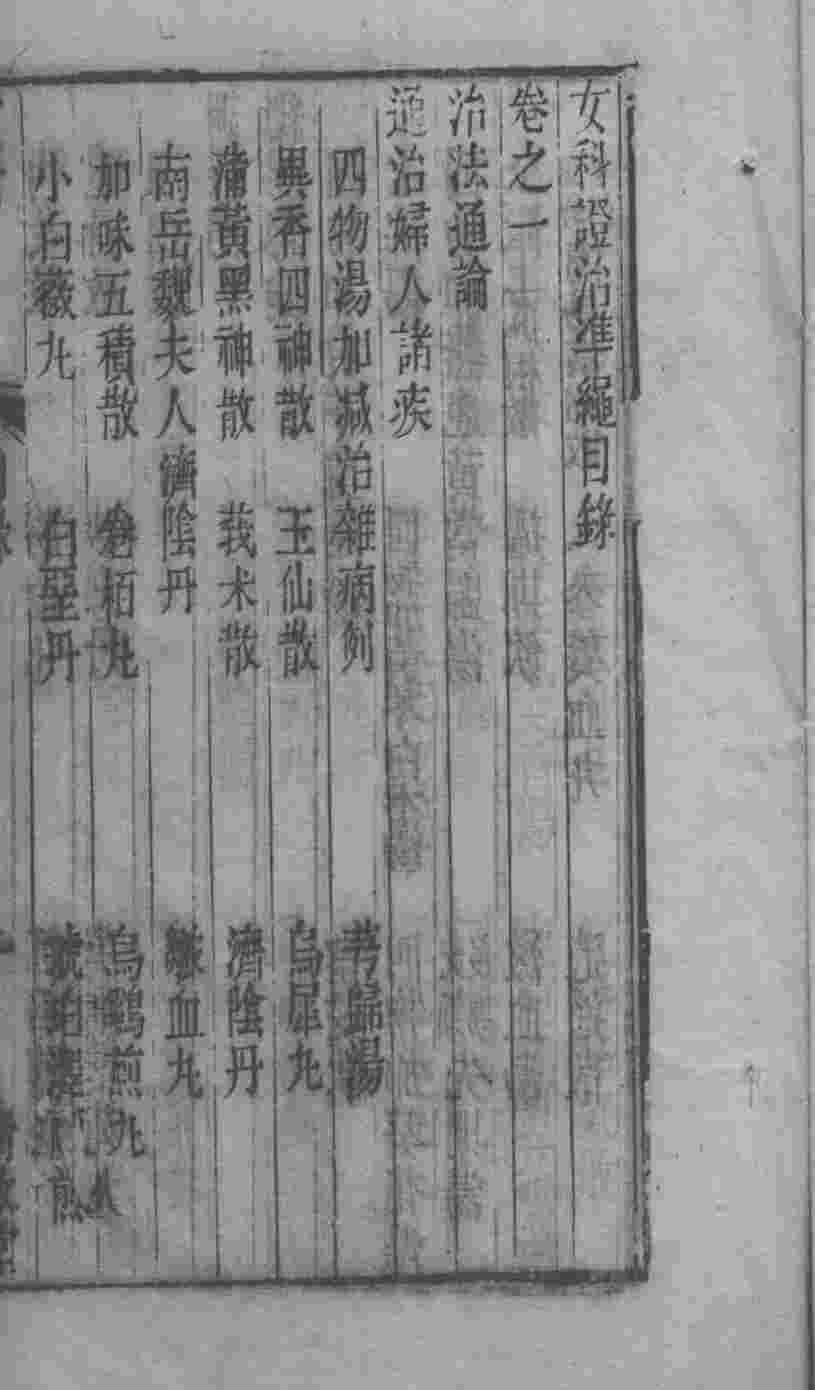 女科證治準繩目錄
卷之一
治法通論
通治婦人諸疾
四物湯加減治雜病例 芎歸湯
異香四神散 玉仙散 烏犀丸
蒲黃黑神散 莪朮散 濟陰丹
南岳魏夫人濟陰丹 血丸
加味五積散 卷栢丸 烏鷄煎丸
小白薇丸 白堊丹 琥珀澤蘭煎